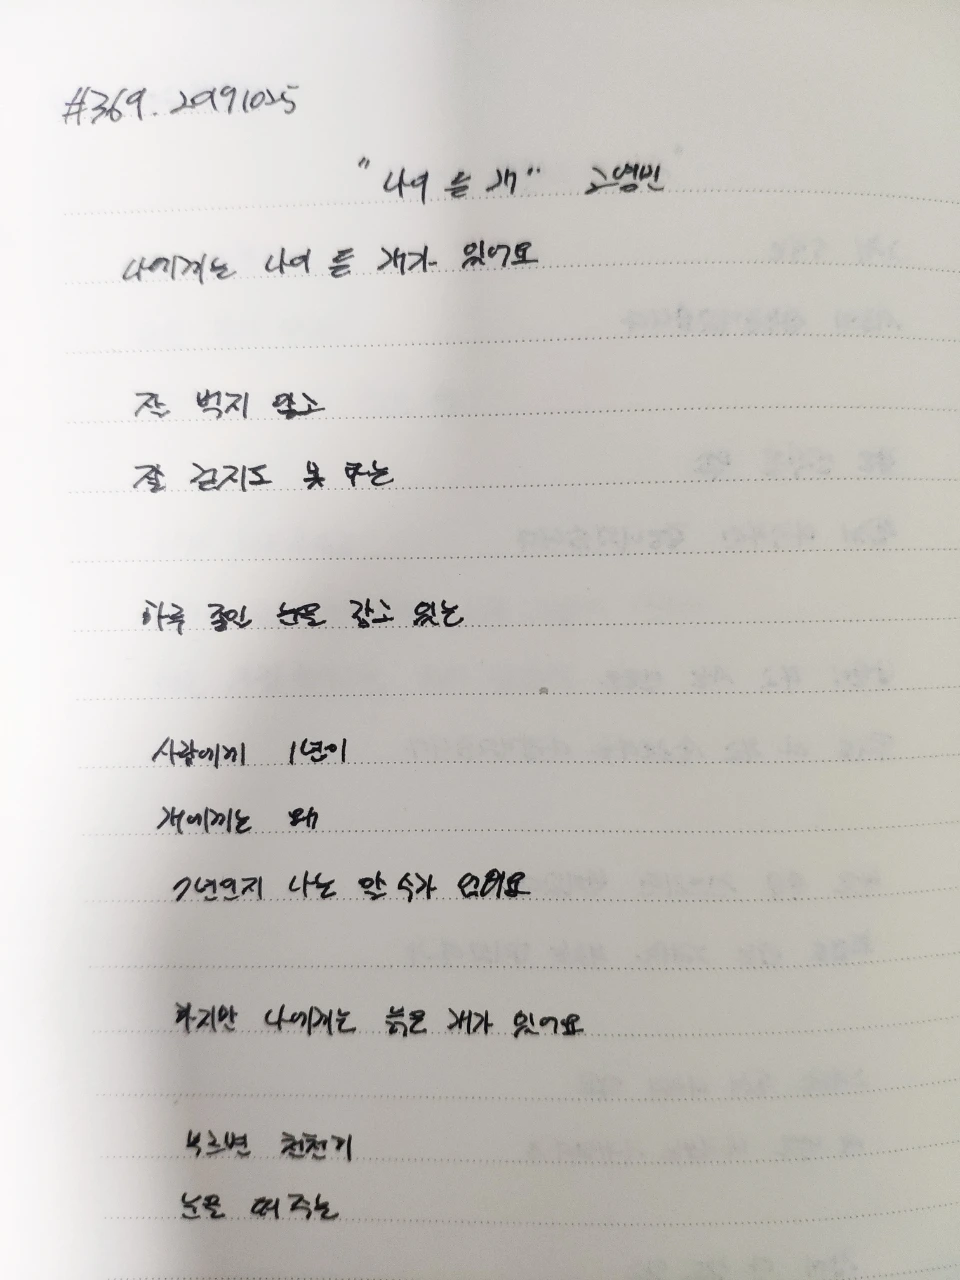 #369. 20191025
"나이 든 개" 고영민
나에게는 나이 든 개가 있어요
잘 먹지 않고
잘 걷지도 못 하는
하루 종일 눈을 감고 있는
사람에게 1년이
개에게는 왜
7년인지 나는 알 수가 없어요
하지만 나에게는 늙은 개가 있어요
부르면 천천히
눈을 떠 주는